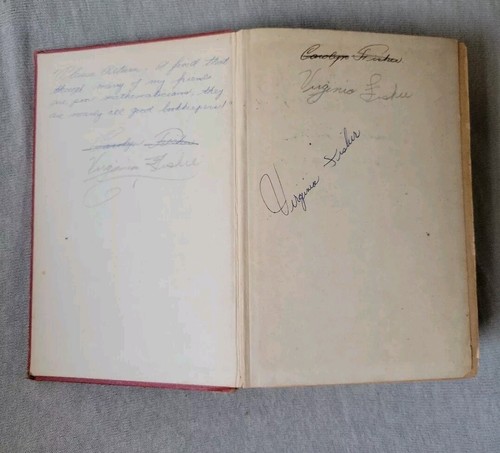 "Please return. I find that
though many of my friends
are poor mathematicians, they
are nearly all good bookkeepers!"
Carolyn Fisher
Virginia Fisher
Carolyn Fisher
Virginia Fisher
Virginia Fisher